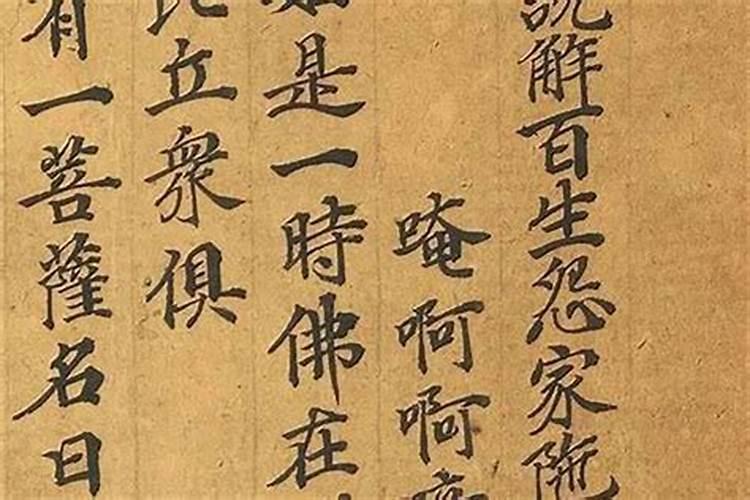 説解百生怨家陁
唵啊啊
如是一時佛在
比立衆俱
有一菩薩名曰